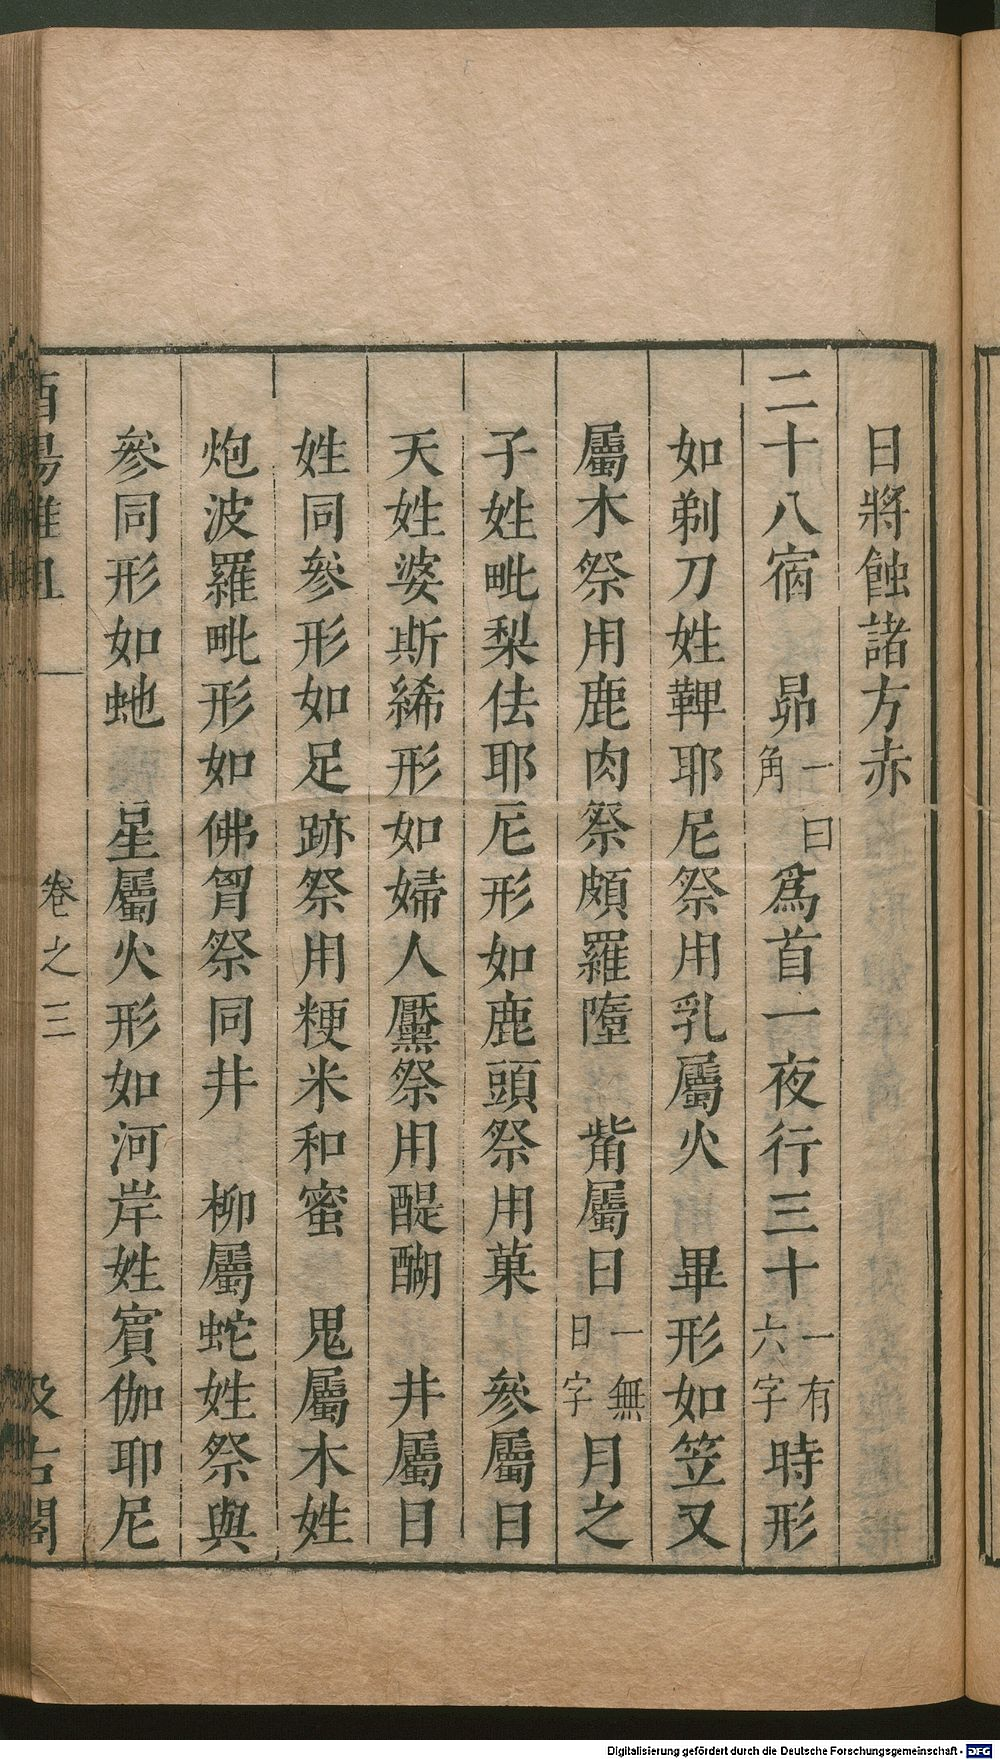 日將蝕諸方赤
二十八宿　昴一曰角爲首一夜行三十一有六字時形
如剃刀姓鞞耶尼祭用乳屬火　畢形如笠叉
屬木祭用鹿肉祭頗羅墮　觜屬日一無日字月之
子姓毗梨佉耶尼形如鹿頭祭用菓　參屬日
天姓婆斯絺形如婦人黶祭用醍醐　井屬日
姓同參形如足跡祭用粳米和蜜　鬼屬木姓
炮波羅毗形如佛胷祭同井　柳屬蛇姓祭與
參同形如虵　星屬火形如河岸姓賓伽耶尼
酉陽雜俎
卷之三
汲古閣
Digitalisierung gefördert durch die Deutsche Forschungsgemeinschaft - DFG